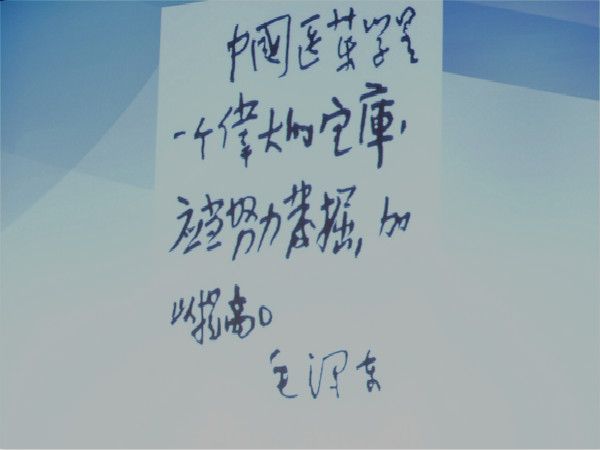 中國医薬学是
一个偉大的宝庫，
应当努力發掘，加
以提高。
毛泽东